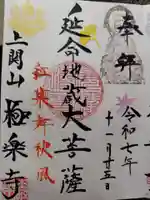 奉拝
令和七年
十一月廿五日
延命地蔵大菩薩
紅葉舞秋風
上関山 極楽寺